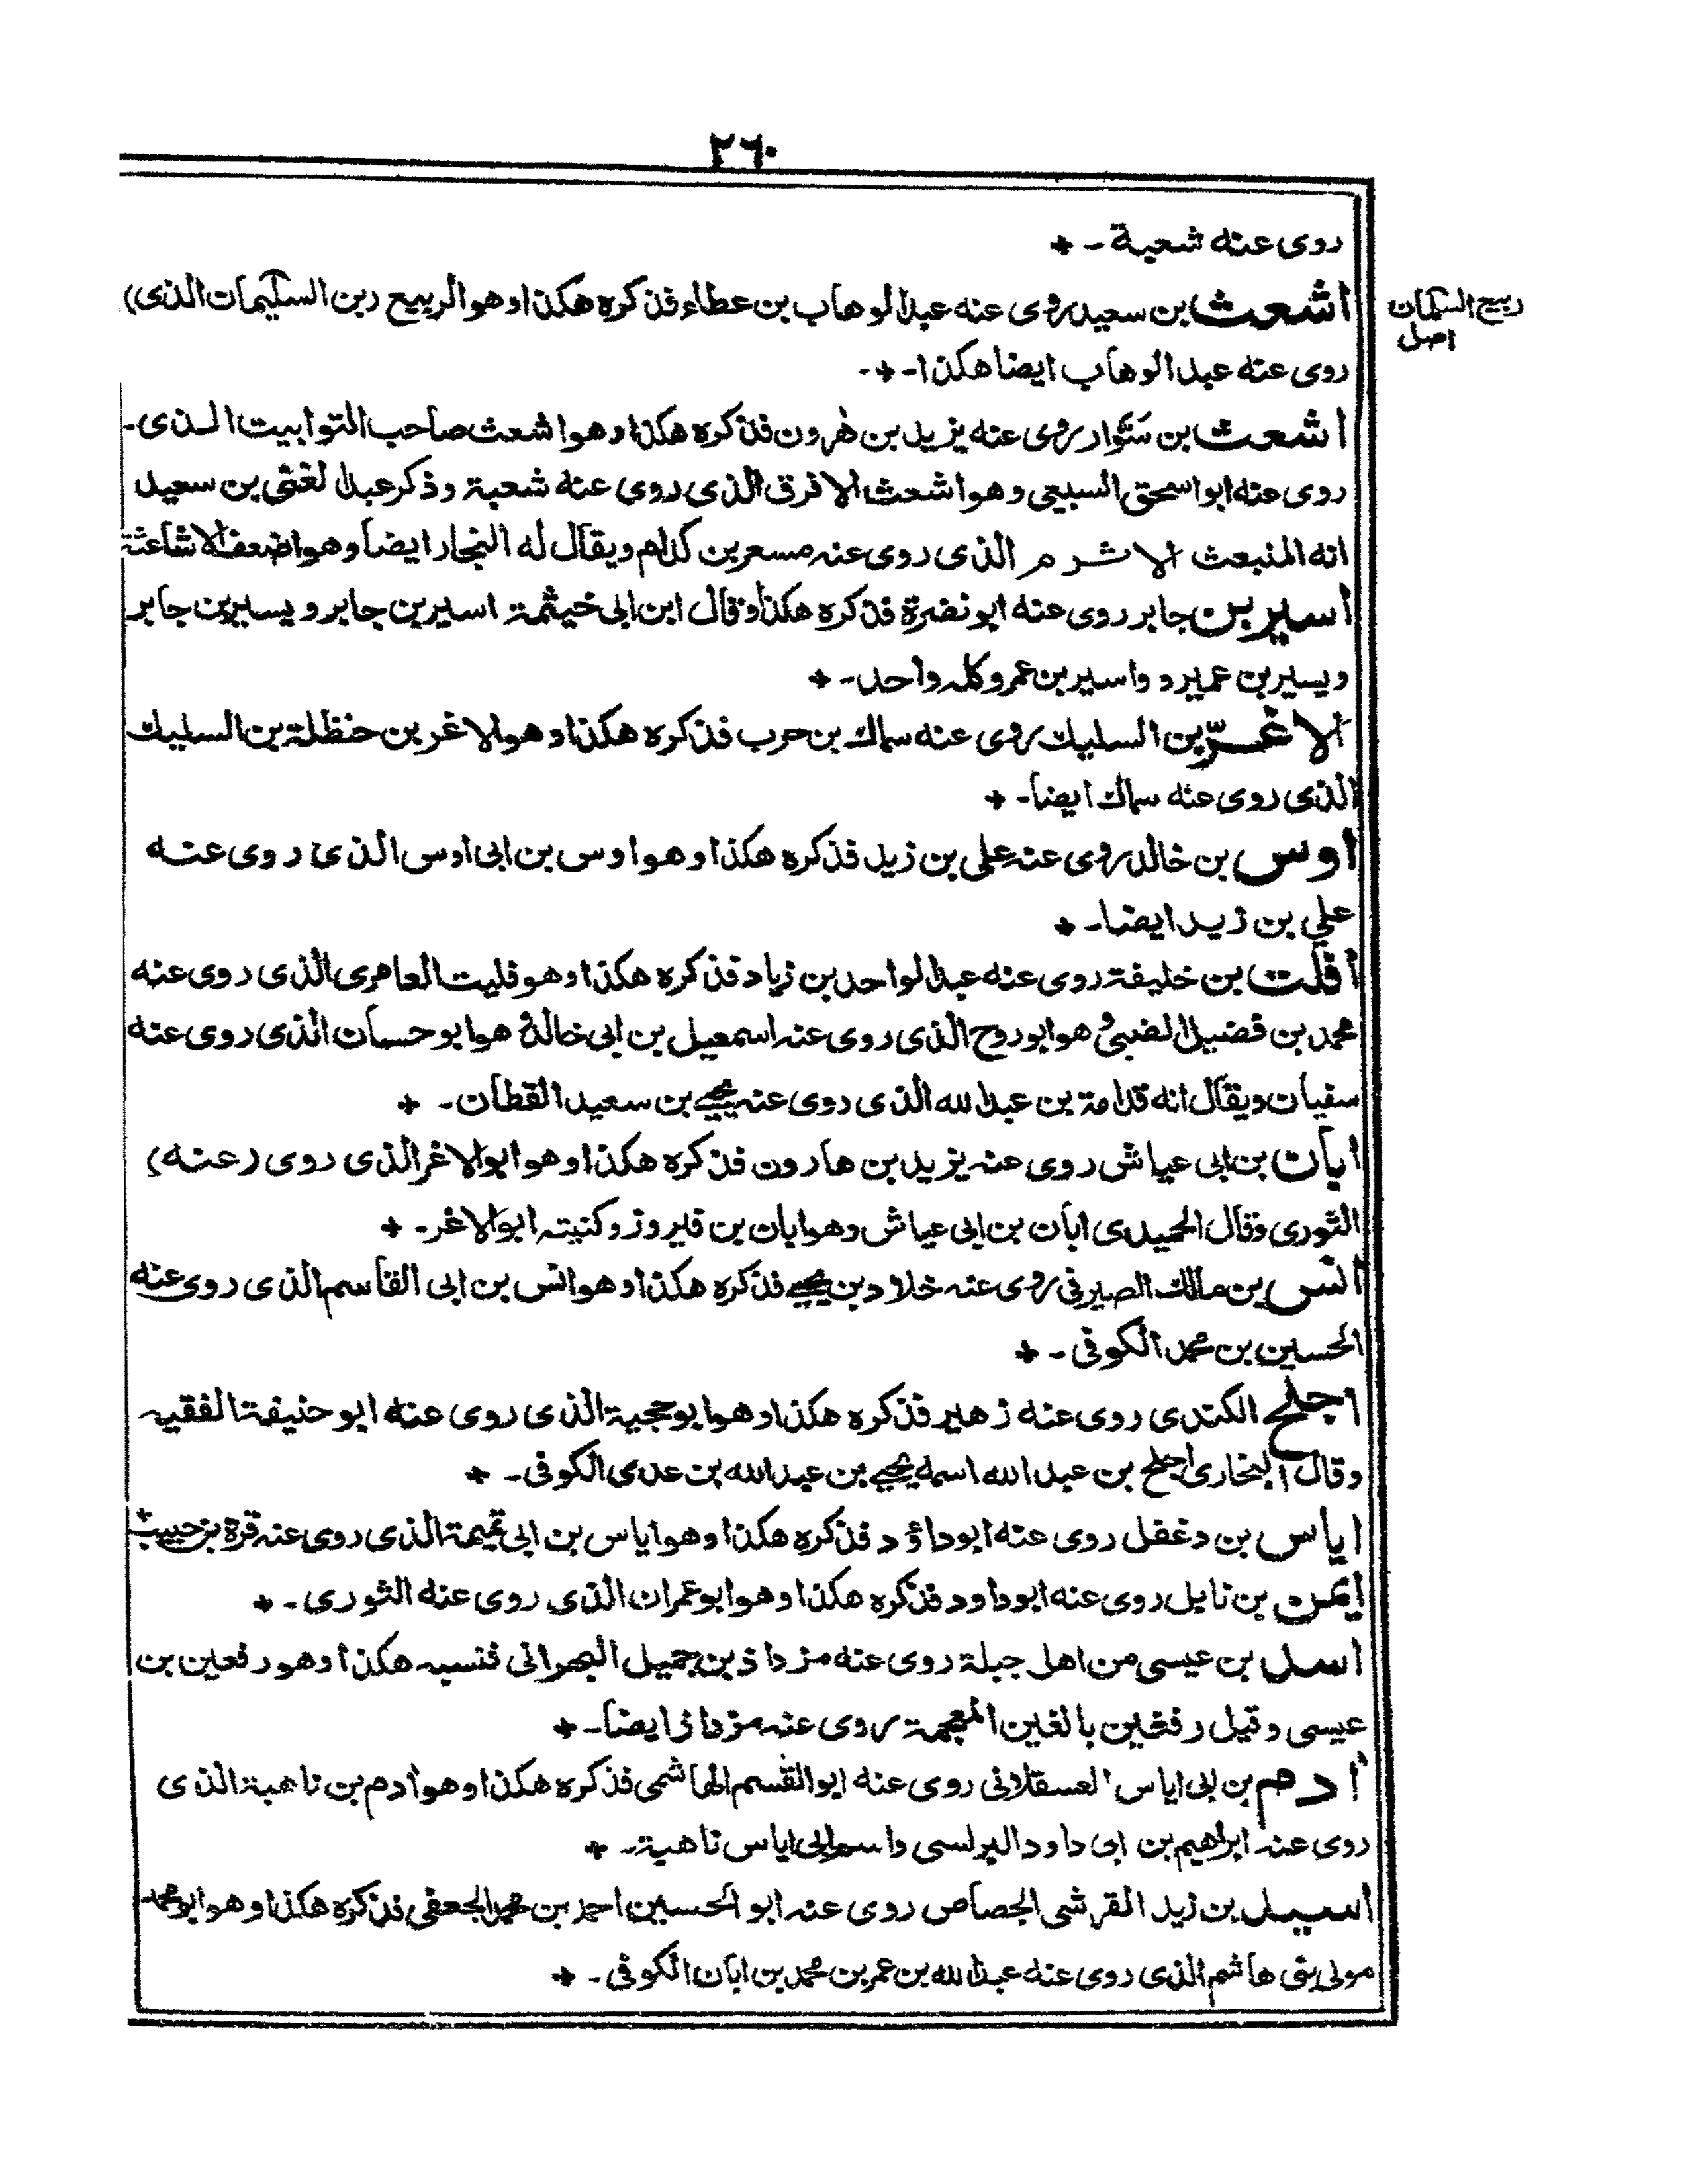 ٢٦٠
روى عنه شعبة ـ +
اشعث بن سعيد روى عنه عبد الوهاب بن عطاء فذكره هكذا وهو الربيع (بن السليمان الذى)
ربيع السلمان
اصل
روى عنه عبد الوهاب ايضا هكذا ـ + ـ
اشعث بن سَوّار روى عنه يزيد بن هٰرون فذكره هكذا وهو اشعث صاحب التوابيت الذى ـ
روى عنه ابو اسحق السبيعى وهو اشعث الافرق الذى روى عنه شعبة وذكر عبد الغنى بن سعيد
انه المنبعث الاشرم الذى روى عنه مسعر بن كدام ويقال له النجار ايضا وهو اضعف الاشاعثة
اسير بن جابر روى عنه ابو نضرة فذكره هكذا وقال ابن ابى خيثمة اسير بن جابر ويسير بن جابر
ويسير بن عمير و واسير بن عمرو كله واحد ـ +
الاغرّ بن السليك روى عنه سماك بن حرب فذكره هكذا وهو الاغر بن حنظلة بن السليك
الذى روى عنه سماك ايضا ـ +
اوس بن خالد روى عنه على بن زيد فذكره هكذا وهو اوس بن ابى اوس الذى روى عنه
على بن زيد ايضا ـ +
افلت بن خليفة روى عنه عبد الواحد بن زياد فذكره هكذا وهو فليت العامرى الذى روى عنه
محمد بن فضيل الضبى و هو ابو روح الذى روى عنه اسمعيل بن ابى خالد و هو ابو حسان الذى روى عنه
سفيان ويقال انه قدامة بن عبد الله الذى روى عنه يحيى بن سعيد القطان ـ +
ابان بن ابى عياش روى عنه يزيد بن هارون فذكره هكذا وهو ابو الاغر الذى روى (عنه)
الثورى وقال الحميدى ابان بن ابى عياش وهو ابان بن فيروز وكنيته ابو الاغر ـ +
انس بن مالك الصيرفى روى عنه خلاد بن يحيى فذكره هكذا وهو انس بن ابى القاسم الذى روى عنه
الحسين بن محمد الكوفى ـ +
اجلح الكندى روى عنه زهير فذكره هكذا وهو ابو حجية الذى روى عنه ابو حنيفة الفقيه
وقال البخارى اجلح بن عبد الله اسمه يحيى بن عبد الله بن عدى الكوفى ـ +
اياس بن دغفل روى عنه ابو داؤد فذكره هكذا وهو اياس بن ابى تميمة الذى روى عنه قرة بن حبيب +
ايمن بن نابل روى عنه ابو داود فذكره هكذا وهو ابو عمران الذى روى عنه الثورى ـ +
اسد بن عيسى من اهل جبلة روى عنه مزداذ بن جميل البهرانى فنسبه هكذا وهو رفعين بن
عيسى وقيل رفغين بالغين المعجمة روى عنه مزداذ ايضا ـ +
اٰدم بن ابى اياس العسقلانى روى عنه ابو القسم الهاشمى فذكره هكذا وهو اٰدم بن ناهية الذى
روى عنه ابراهيم بن ابى داود البرلسى واسم ابى اياس ناهية ـ +
اسيد بن زيد القرشى الجصاص روى عنه ابو الحسين احمد بن محمد الجعفى فذكره هكذا وهو ابو محمد
مولى بنى هاشم الذى روى عنه عبد الله بن عمر بن محمد بن ابان الكوفى ـ +